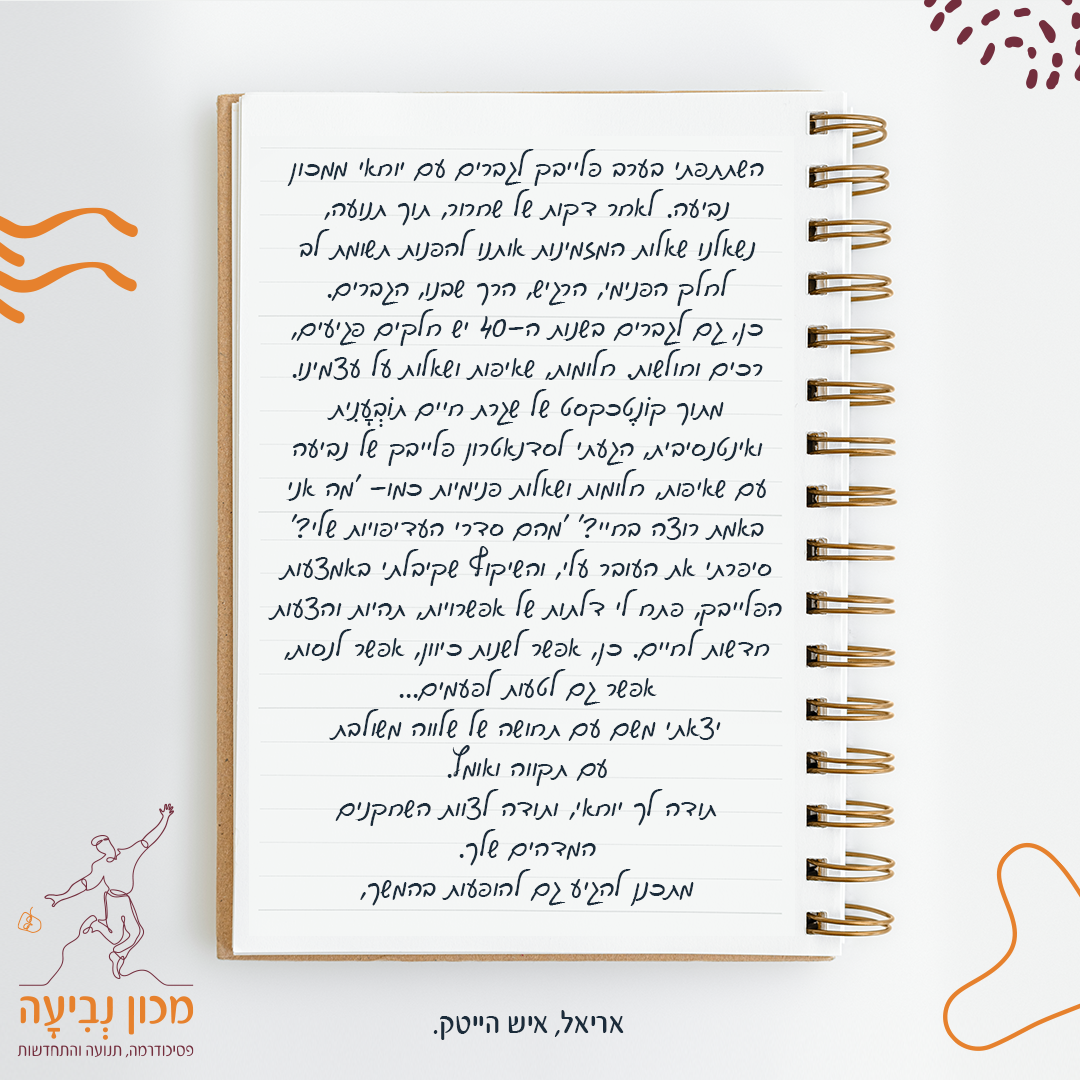 השתתפתי בערב פלייבק לגברים עם יוחאי ממכון
נביעה. לאחר דקות של שחרור, תוך תנועה,
נשאלנו שאלות המזמינות אותנו להפנות תשומת לב
לחלק הפנימי, הרגיש, הרך שבנו, הגברים.
כן, גם לגברים בשנות ה-40 יש חלקים פגיעים,
רכים וחולשות. חלומות, שאיפות ושאלות על עצמינו.
מתוך קוֹנְטֶכקסט של שגרת חיים תוֹבְעָנִית
ואינטנסיבית, הגעתי לסדנאטרון פלייבק של נביעה
עם שאיפות, חלומות ושאלות פנימיות כמו- 'מה אני
באמת רוצה בחיי?' 'מהם סדרי העדיפויות שלי?'
סיפרתי את העובר עלי, והשיקוף שקיבלתי באמצעות
הפלייבק, פתח לי דלתות של אפשרויות, תהיות והצעות
חדשות לחיים. כן, אפשר לשנות כיוון, אפשר לנסות,
אפשר גם לטעות לפעמים...
יצאתי משם עם תחושה של שלווה משולבת
עם תקווה ואומץ.
תודה לך יוחאי, ותודה לצוות השחקנים
המדהים שלך.
מתכנן להגיע גם להופעות בהמשך,
אריאל, איש הייטק.
מכון נְבִיעָה
פסיכודרמה, תנועה והתחדשות